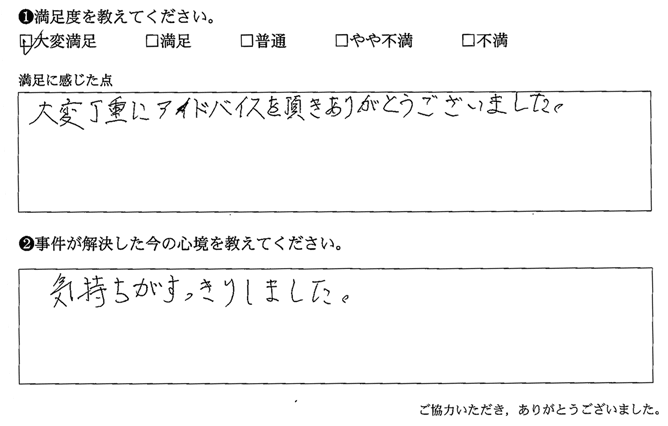 ❶満足度を教えてください。
☑大変満足 □満足 □普通 □やや不満 □不満
満足に感じた点
大変丁重にアドバイスを頂きありがとうございました。
❷事件が解決した今の心境を教えてください。
気持ちがすっきりしました。
ご協力いただき，ありがとうございました。